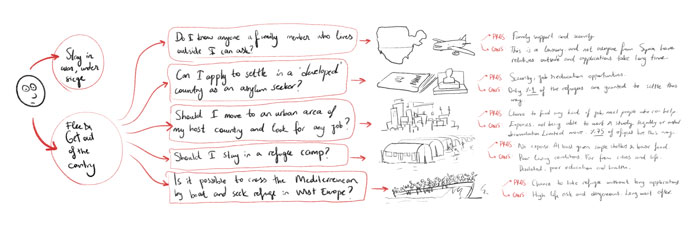 Stay in
war, under
siege
Flee &
Get out
of the
country
Do I know anyone a family member who lives
outside I can ask?
Can I apply to settle in a 'developed'
country as an asylum seeker?
Should I move to an urban area of
my host country and look for any job?
Should I stay in a refugee camp?
Is it possible to cross the Mediterranean
by boat and seek refuge in West Europe?
PROS Family support and
CONS This is a luxury and not everyone from Syria have
relatives outside and applications take long time.
PROS Security, job & education opportunities.
CONS Only of the refugees are granted to settle this
way.
PROS Chance to find any kind of job, meet people who can help
CONS not being able to work & study legally or
Limited of refugees be this way.
PROS No expense. At least given shelter & food.
CONS Poor living conditions. Far from cities and life.
Isolated, poor education and health.
PROS Chance to take refuge without long applications
CONS High life risk and dangerous. Long wait after